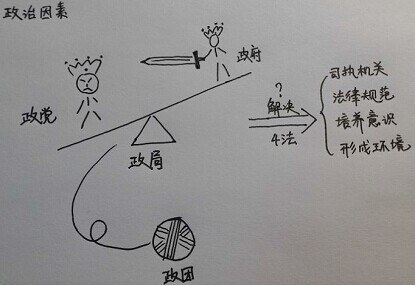 政治因素
政府
政党
政局
政团
?
解决
4法
司执机关
法律规范
培养意识
形成环境